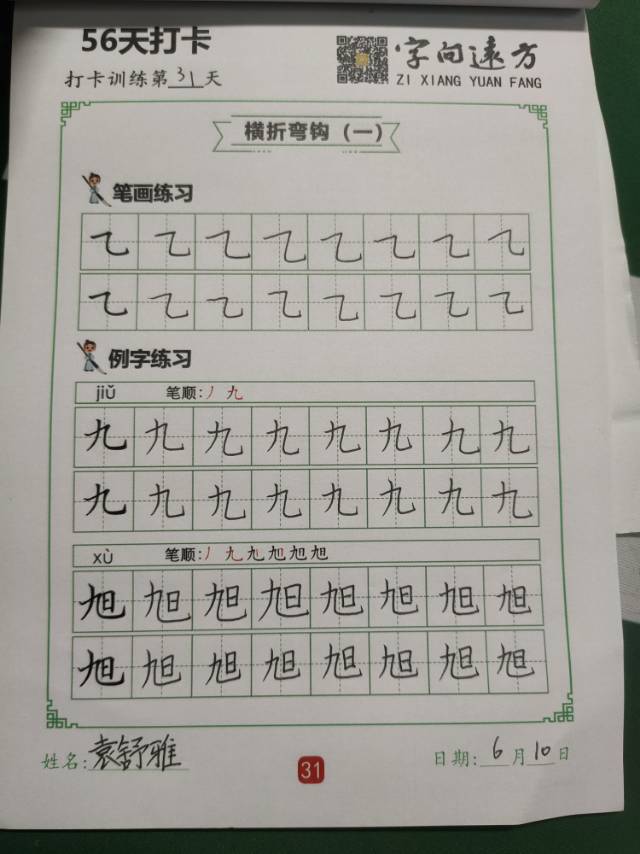 56天打卡
字向远方
打卡训练第31天
ZI XIANG YUAN FANG
横折弯钩（一）
笔画练习
乙乙乙乙乙乙乙乙
乙乙乙乙乙乙乙乙
例字练习
jiǔ 笔顺:丿九
九九九九九九九九
九九九九九九九九
xù 笔顺:丿九旭旭旭旭
旭旭旭旭旭旭旭旭
旭旭旭旭旭旭旭旭
姓名:袁舒雅
31
日期:6月10日